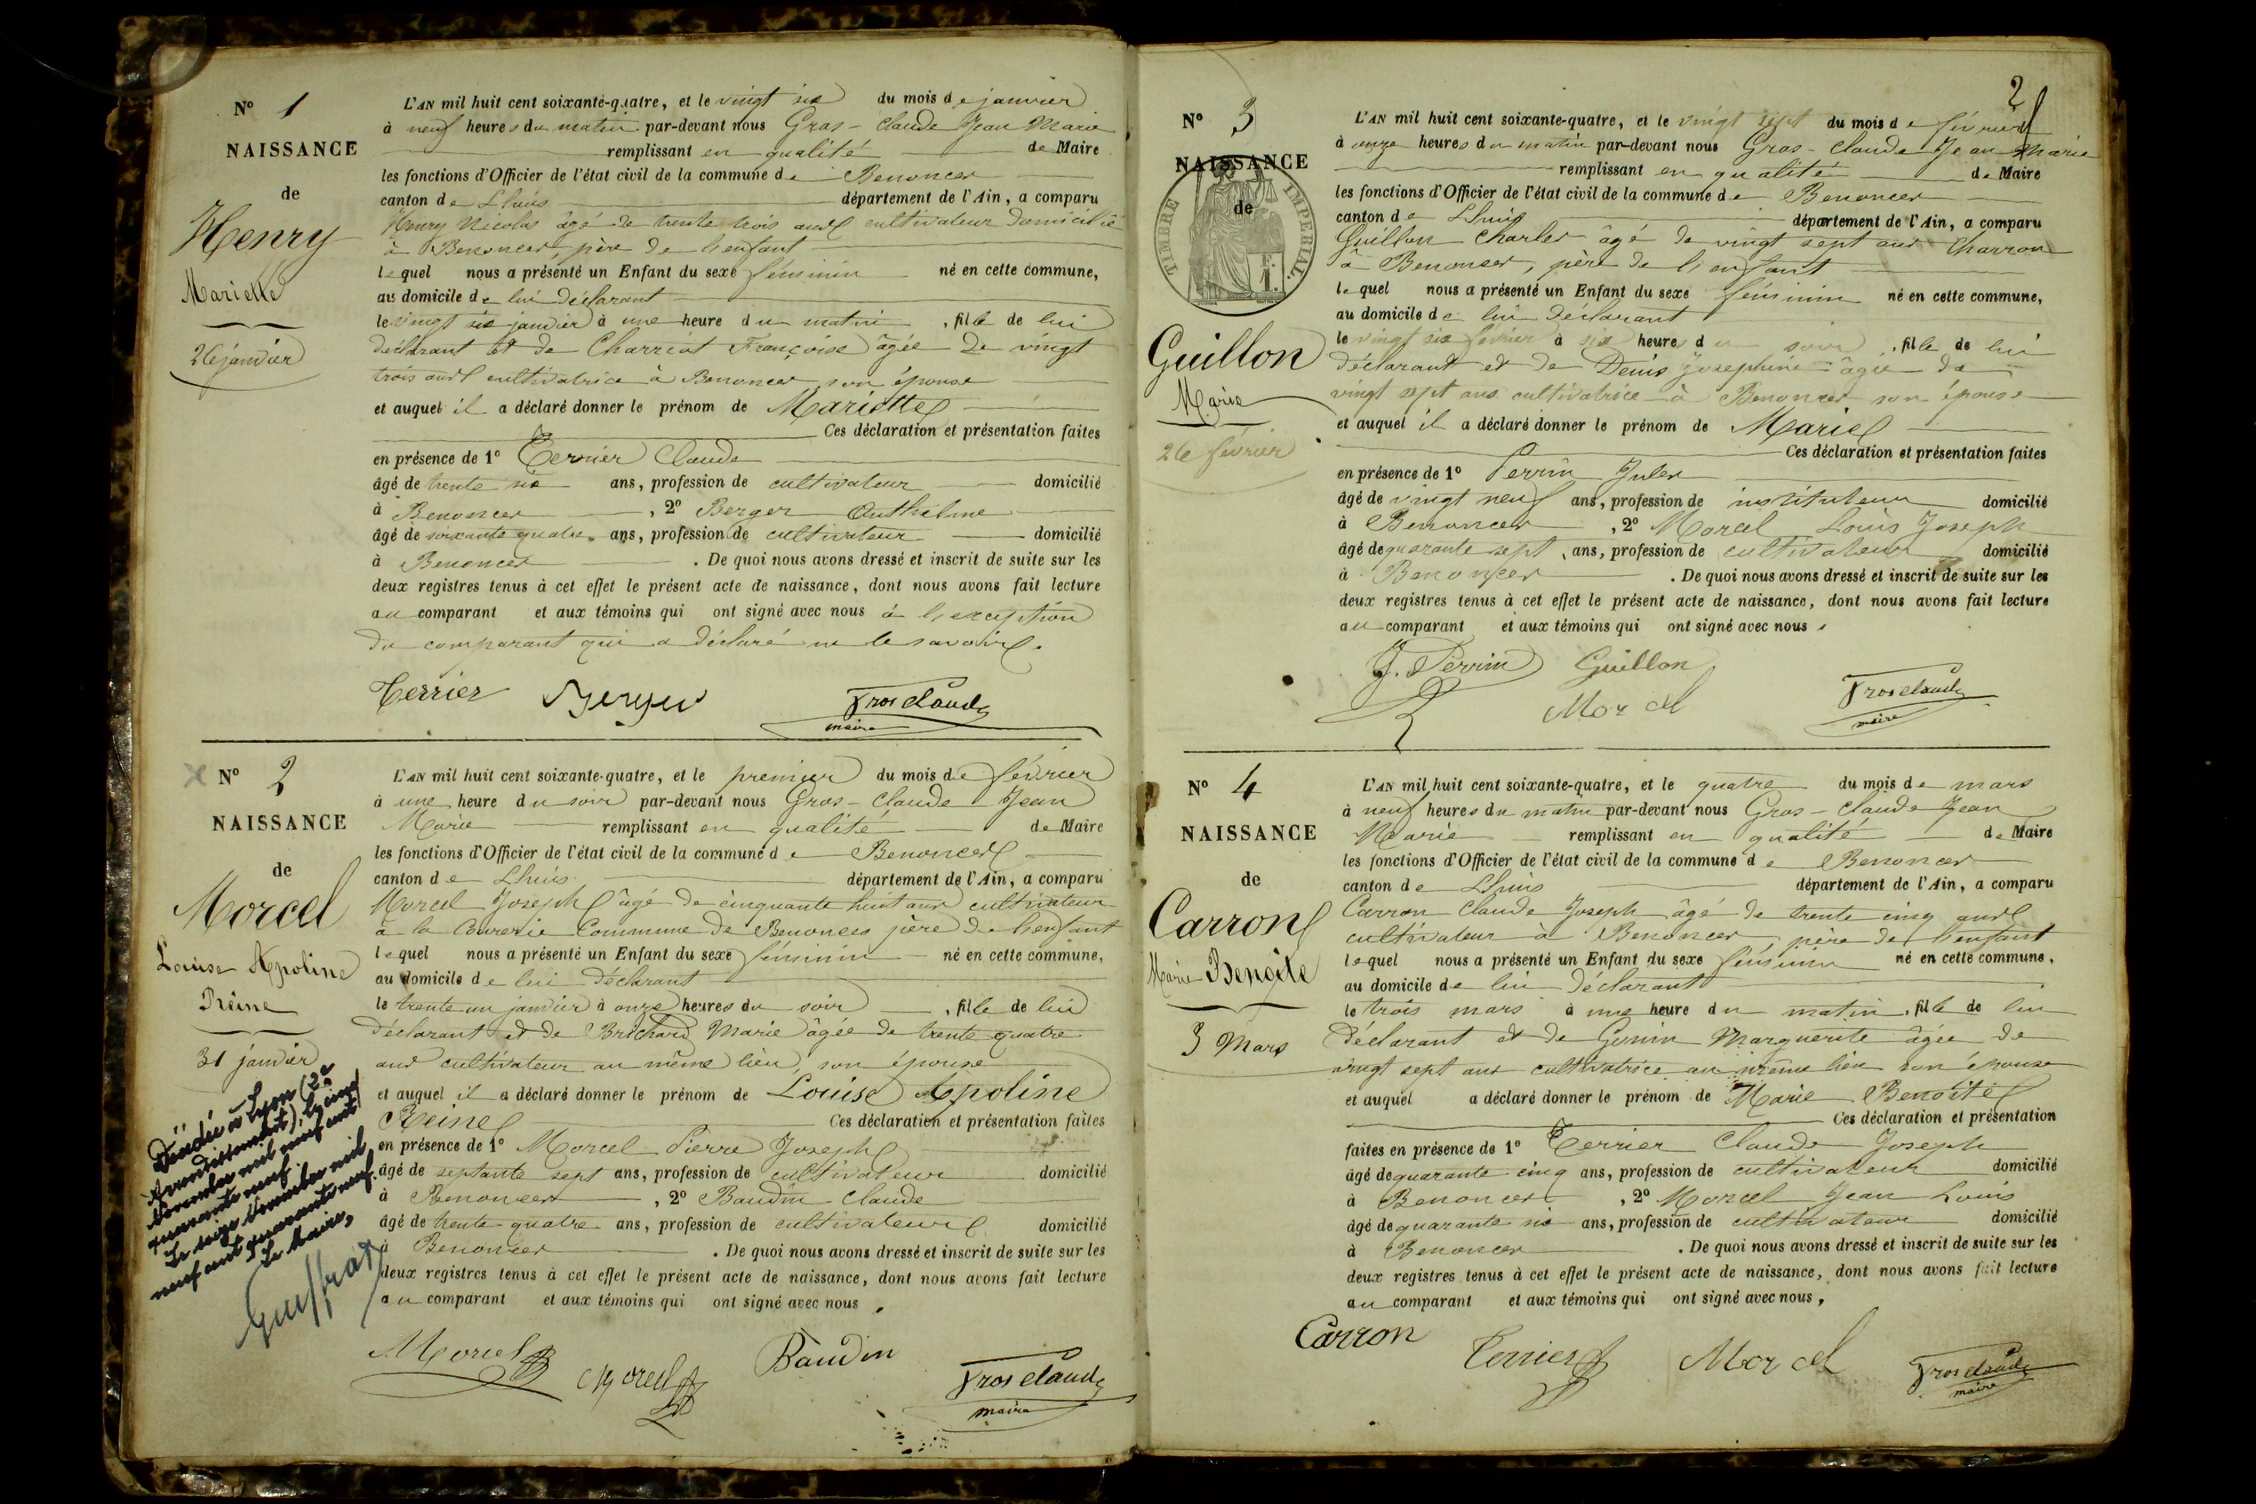 N° 1
NAISSANCE
de
Henry
Mariette
26 janvier
L'AN mil huit cent soixante-quatre, et le vingt six du mois de janvier
à neuf heures du matin par-devant nous Gros-Claude Jean Marie
remplissant en qualité de Maire
les fonctions d'Officier de l'état civil de la commune de Benonces
canton de Lhuis département de l'Ain, a comparu
Henry Nicolas âgé de trente trois ans cultivateur domicilié
à Benonces, père de l'enfant
lequel nous a présenté un Enfant du sexe féminin né en cette commune,
au domicile de lui déclarant
le vingt six janvier à une heure du matin, fille de lui
déclarant et de Charriot Françoise âgée de vingt
trois ans cultivatrice à Benonces son épouse
et auquel il a déclaré donner le prénom de Mariette
Ces déclaration et présentation faites
en présence de 1° Terrier Claude
âgé de trente six ans, profession de cultivateur domicilié
à Benonces, 2° Berger Anthelme
âgé de soixante quatre ans, profession de cultivateur domicilié
à Benonces. De quoi nous avons dressé et inscrit de suite sur les
deux registres tenus à cet effet le présent acte de naissance, dont nous avons fait lecture
au comparant et aux témoins qui ont signé avec nous à l'exception
du comparant qui a déclaré ne le savoir.
Terrier Berger Grosclaude
maire
N° 2
NAISSANCE
de
Morcel
Louise Apoline
Reine
31 janvier
Décédée à Lyon (2e
Arrondissement), le cinq
novembre mil neuf cent
quarante neuf.
Le seize novembre mil
neuf cent quarante neuf.
Le Maire,
L'AN mil huit cent soixante-quatre, et le premier du mois de février
à une heure du soir par-devant nous Gros-Claude Jean
Marie remplissant en qualité de Maire
les fonctions d'Officier de l'état civil de la commune de Benonces
canton de Lhuis département de l'Ain, a comparu
Morcel Joseph âgé de cinquante huit ans cultivateur
à la Commune de Benonces père de l'enfant
lequel nous a présenté un Enfant du sexe féminin né en cette commune,
au domicile de lui déclarant
le trente un janvier à onze heures du soir, fille de lui
déclarant et de Brichard Marie âgée de trente quatre
ans cultivateur au même lieu, son épouse
et auquel il a déclaré donner le prénom de Louise Apoline
Reine Ces déclaration et présentation faites
en présence de 1° Morcel Pierre Joseph
âgé de septante sept ans, profession de cultivateur domicilié
à Benonces, 2° Baudin Claude
âgé de trente quatre ans, profession de cultivateur domicilié
à Benonces. De quoi nous avons dressé et inscrit de suite sur les
deux registres tenus à cet effet le présent acte de naissance, dont nous avons fait lecture
au comparant et aux témoins qui ont signé avec nous.
Morcel Morcel Baudin Grosclaude
maire
2
N° 3
NAISSANCE
de
TIMBRE IMPERIAL
Guillon
Marie
26 février
L'AN mil huit cent soixante-quatre, et le vingt sept du mois de février
à onze heures du matin par-devant nous Gros-Claude Jean Marie
remplissant en qualité de Maire
les fonctions d'Officier de l'état civil de la commune de Benonces
canton de Lhuis département de l'Ain, a comparu
Guillon Charles âgé de vingt sept ans Charron
à Benonces, père de l'enfant
lequel nous a présenté un Enfant du sexe féminin né en cette commune,
au domicile de lui déclarant
le vingt six février à six heures du soir, fille de lui
déclarant et de Denis Josephine âgée de
vingt sept ans cultivatrice à Benonces son épouse
et auquel il a déclaré donner le prénom de Marie
Ces déclaration et présentation faites
en présence de 1° Perrin Jules
âgé de vingt neuf ans, profession de instituteur domicilié
à Benonces, 2° Morcel Louis Joseph
âgé de quarante sept ans, profession de cultivateur domicilié
à Benonces. De quoi nous avons dressé et inscrit de suite sur les
deux registres tenus à cet effet le présent acte de naissance, dont nous avons fait lecture
au comparant et aux témoins qui ont signé avec nous.
J. Perrin Guillon
Morcel Grosclaude
maire
N° 4
NAISSANCE
de
Carron
Marie Benoite
3 Mars
L'AN mil huit cent soixante-quatre, et le quatre du mois de mars
à neuf heures du matin par-devant nous Gros-Claude Jean
Marie remplissant en qualité de Maire
les fonctions d'Officier de l'état civil de la commune de Benonces
canton de Lhuis département de l'Ain, a comparu
Carron Claude Joseph âgé de trente cinq ans
cultivateur à Benonces père de l'enfant
lequel nous a présenté un Enfant du sexe féminin né en cette commune,
au domicile de lui déclarant
le trois mars à une heure du matin, fille de lui
déclarant et de Genin Marguerite âgée de
vingt sept ans cultivatrice au même lieu son épouse
et auquel a déclaré donner le prénom de Marie Benoite
Ces déclaration et présentation
faites en présence de 1° Terrier Claude Joseph
âgé de quarante cinq ans, profession de cultivateur domicilié
à Benonces, 2° Morcel Jean Louis
âgé de quarante six ans, profession de cultivateur domicilié
à Benonces. De quoi nous avons dressé et inscrit de suite sur les
deux registres tenus à cet effet le présent acte de naissance, dont nous avons fait lecture
au comparant et aux témoins qui ont signé avec nous,
Carron Terrier Morcel Grosclaude
maire